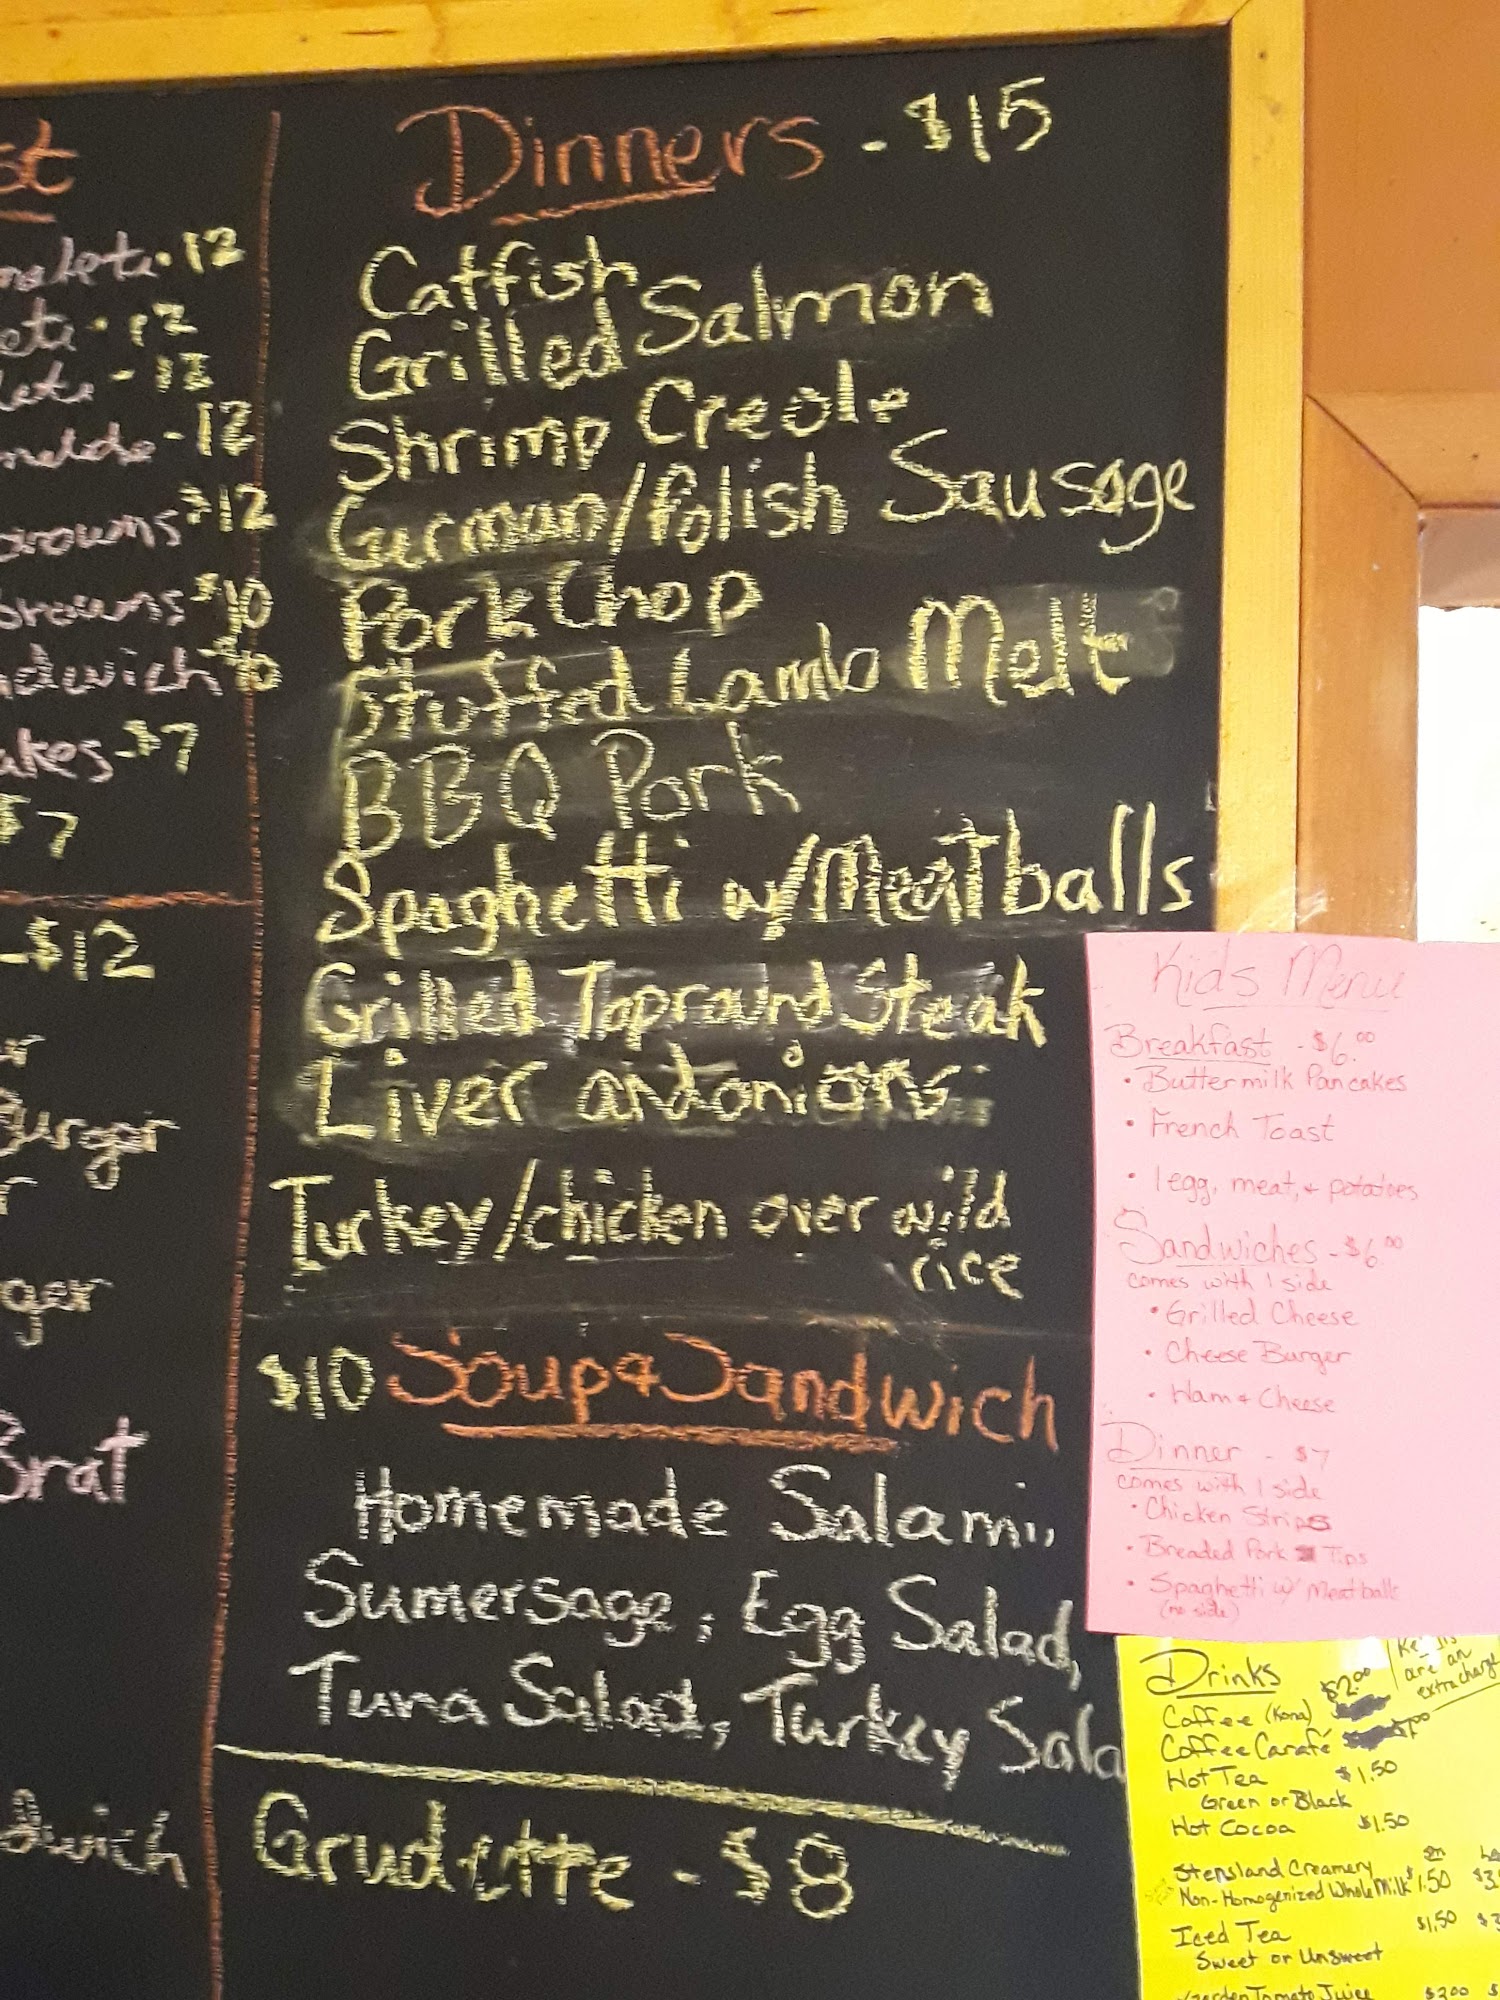 st
12
12
- 12
- 12
browns $12
browns $10
dwich $10
akes - $7
$7
- $12
Burger
ger
Brat
dwich
Dinners - $15
Catfish
Grilled Salmon
Shrimp Creole
German/Polish Sausage
Pork Chop
Stuffed Lamb Melt
BBQ Pork
Spaghetti w/Meatballs
Grilled Topround Steak
Liver and onions
Turkey/chicken over wild
rice
$10 Soup & Sandwich
Homemade Salami,
Sumersage, Egg Salad,
Tuna Salad, Turkey Sala
Grudette - $8
Kids Menu
Breakfast - $6.00
• Buttermilk Pancakes
• French Toast
• 1 egg, meat, & potatoes
Sandwiches - $6.00
comes with 1 side
• Grilled Cheese
• Cheese Burger
• Ham & Cheese
Dinner - $7
comes with 1 side
• Chicken Strips
• Breaded Pork Tips
• Spaghetti w/ Meatballs
(no side)
Drinks
are an
extra charge
Coffee (Kona) $2.00
Coffee Carafé
Hot Tea $1.50
Green or Black
Hot Cocoa $1.50
Stensland Creamery
Non-Homogenized Whole Milk $1.50 $3.
Iced Tea $1.50 $3
Sweet or Unsweet
Garden Tomato Juice $2.00 $